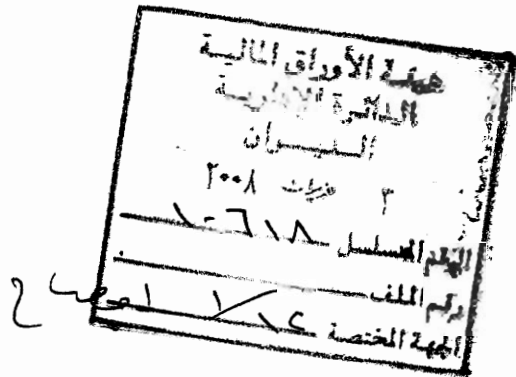 هيئة الأوراق المالية
الدائرة الإدارية
الديوان
٣ حزيران ٢٠٠٨
الرقم المتسلسل ١٠٦١٨
رقم الملف
الجهة المختصة ١٢/١